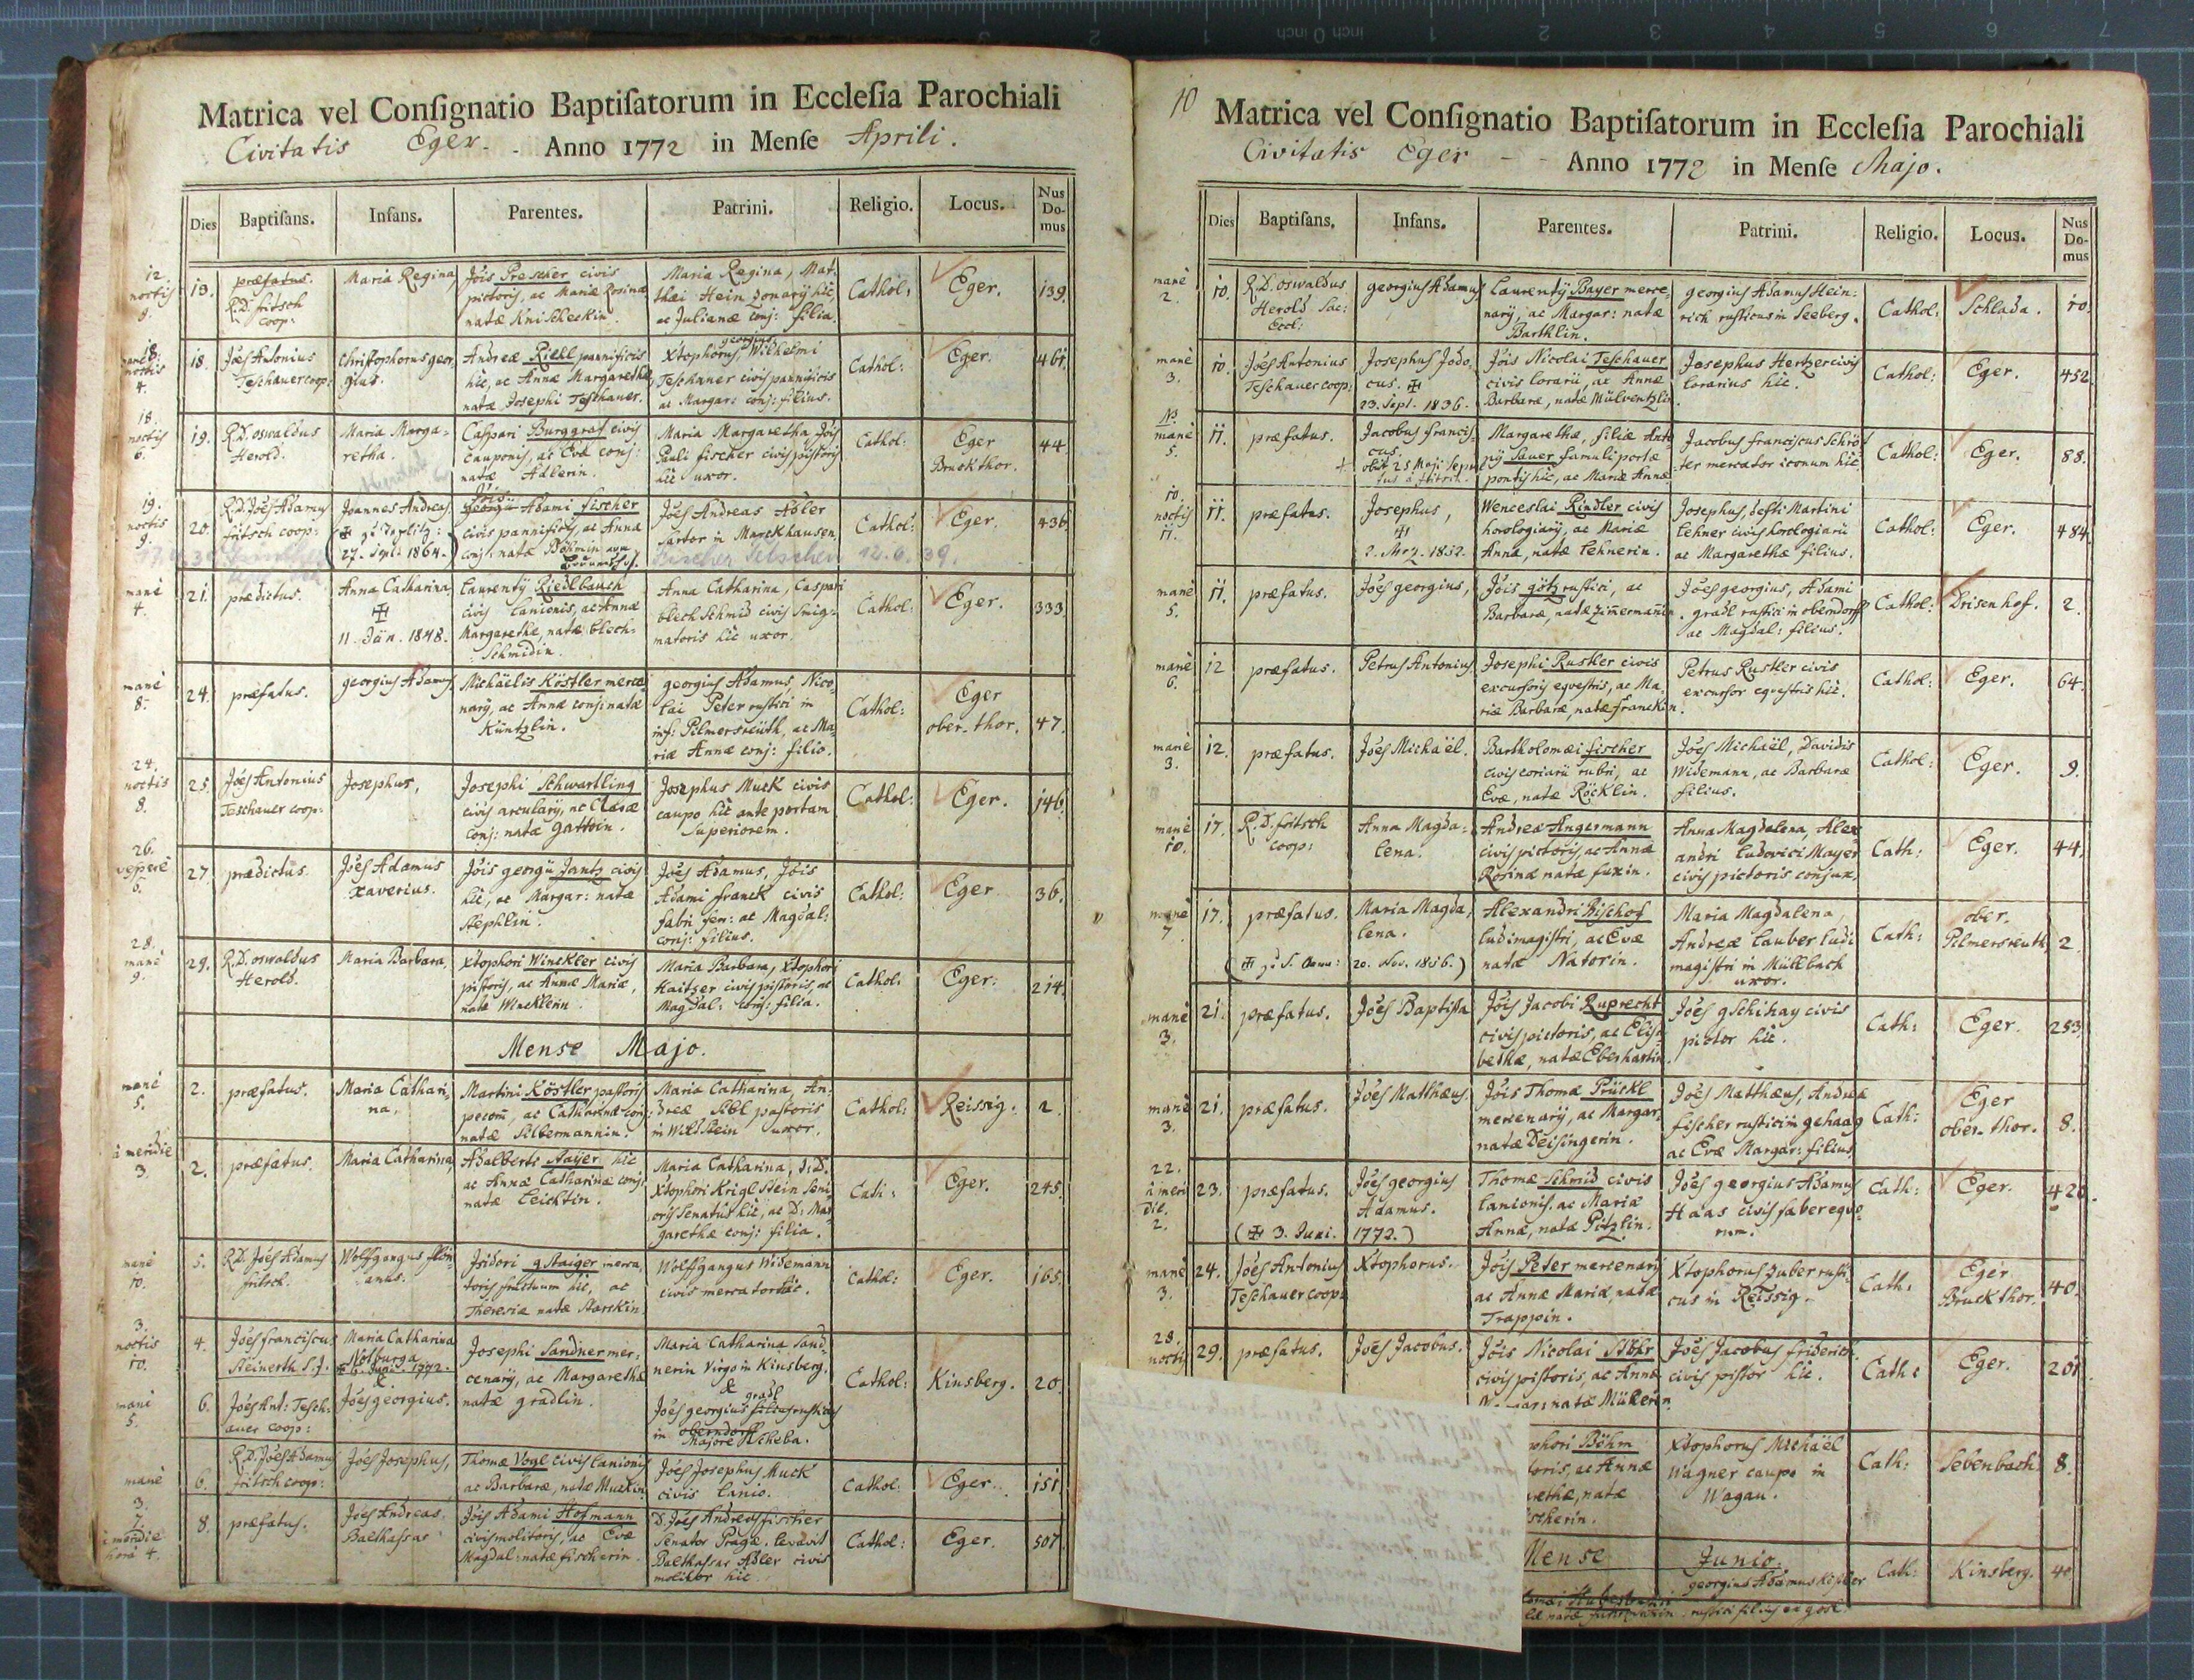 Matrica vel Conſignatio Baptiſatorum in Eccleſia Parochiali
Civitatis Eger. Anno 1772 in Menſe Aprili.
Dies Baptiſans. Infans. Parentes. Patrini. Religio. Locus. Nus Domus
12. noctis 8. 13. præfatus. Maria Regina, Jöis Prescher civis Maria Regina, Mat- Cathol: Eger. 139.
R.D. fritsch pictoris, ac Mariæ Rosinæ thæi Hein hic,
coop: natæ Knischeckin. ac Julianæ conj: filia.
18. noctis 4. 18. Jöes Antonius Christophorus geor- Andreæ Riehl pannificis Xtophorus georgius Wilhelmi Cathol: Eger. 461.
Teschauer coop: gius. hic, ac Annæ Margarethæ, Teschauer civis pannificis
natæ Josephi Teschauer. ac Margar: conj: filius.
18. noctis 6. 19. R.D. oswaldus Maria Marga- Caspari Burggraf civis Maria Margaretha Jöis Cathol: Eger 44.
Herold. retha. cauponis, ac Evæ conj: Pauli fischer civis pistoris Bruckthor.
natæ Adlerin. hic uxor.
19. noctis 9. 20. R.D. Jöes Adamus Joannes Andreas. Jöis Adami fischer Jöes Andreas Adler Cathol: Eger. 436.
fritsch coop: civis pannificis, ac Anna sartor in Marckhausen.
27. 1864. conj: natæ Böhmin
Fischer 12.6.39.
mane 4. 21. prædictus. Anna Catharina, Laurentÿ Riedlbauch Anna Catharina, Caspari Cathol: Eger. 333.
civis lanionis, ac Annæ blech Schmid civis
11. Jän. 1848. Margarethæ, natæ blech- matoris hic uxor.
Schmidin.
mane 8. 24. præfatus. georgius Adamus, Michäelis Köstler merce- georgius Adamus, Nico- Cathol: Eger 47.
narÿ, ac Annæ conj: natæ lai Peter rustici in ober thor.
Küntzlin. inf: Pilmersreüth, ac Ma-
riæ Annæ conj: filio.
24. noctis 8. 25. Jöes Antonius Josephus, Josephi Schwartling Josephus Muck civis Cathol: Eger. 146.
Teschauer coop: civis arcularÿ, ac Claræ caupo hic ante portam
conj: natæ superiorem.
26. vespere 6. 27. prædictus. Jöes Adamus Jöis georgii Jantz civis Jöes Adamus, Jöis Cathol: Eger 36.
xaverius. hic, ac Margar: natæ Adami franck civis
Stephlin. fabri fer: ac Magdal:
conj: filius.
28. mane 9. 29. R.D. oswaldus Maria Barbara, Xtophori Winckler civis Maria Barbara, Xtophori Cathol: Eger. 214.
Herold. pistoris, ac Annæ Mariæ, Kaitzer civis pistoris, ac
natæ Macklerin. Magdal: conj: filia.
Mense Majo.
mane 5. 2. præfatus. Maria Cathari- Martini Köstler pastoris Maria Catharina An- Cathol: Reissig. 2.
na, ac Catharinæ conj: dreæ pastoris
natæ Silbermannin. in Wildstein uxor.
à meridie 3. 2. præfatus. Maria Catharina, Adalberti hic Maria Catharina, Cath: Eger. 245.
ac Annæ Catharinæ conj: Xtophori Kriglstein Seni-
natæ Leichtin. oris Senatus hic, ac D: Mar-
garethæ conj: filia.
mane 10. 5. R.D. Jöes Adamus Wolffgangus flori- Isidori gstaiger merca- Wolffgangus Widemann Cathol: Eger. 165.
fritsch. anus. toris hic, ac civis mercator hic.
Theresiæ natæ
3. noctis 10. 4. Jöes franciscus Maria Catharina Josephi Sandner mer- Maria Catharina Sand- Cathol: Kinsberg. 20.
Steinerth S.J. Notburga cenarÿ, ac Margarethæ nerin Virgo in Kinsberg.
6. Juni. 1772. natæ gradlin. &
mane 5. 6. Jöes Ant: Tesch- Jöes georgius. Jöes georgius gradl
auer coop: in oberndorff
R.D. Jöes Adamus Jöes Josephus, Thomæ Vogl civis lanionis Jöes Josephus Muck Cathol: Eger. 151.
mane 3. 6. fritsch coop: ac Barbaræ, natæ Muckin. civis lanio.
7. à meridie hora 4. 8. præfatus. Jöes Andreas Jöis Adami Hofmann D. Jöes Andreas fischer Cathol: Eger. 507.
Balthassar civis molitoris, ac Evæ Senator Pragæ. levavit
Magdal: natæ fischerin. Balthassar Adler civis
molitor hic.
10 Matrica vel Conſignatio Baptiſatorum in Eccleſia Parochiali
Civitatis Eger Anno 1772 in Menſe Majo.
Dies Baptiſans. Infans. Parentes. Patrini. Religio. Locus. Nus Domus
mane 2. 10. R.D. oswaldus georgius Adamus Laurentÿ Bayer merce- georgius Adamus Hein- Cathol: Schlada. 10.
Herold Sac: narÿ, ac Margar: natæ rich rusticus in Seeberg.
Eccl: Barthlin.
mane 3. 10. Jöes Antonius Josephus Jodo- Jöis Nicolai Teschauer Josephus Hertzer civis Cathol: Eger. 452.
Teschauer coop: cus. civis lorarii, ac Annæ lorarius hic.
23. Sept. 1836. Barbaræ, natæ Mülventzlin.
mane 5. 11. præfatus. Jacobus francis- Margarethæ, filiæ Anto- Jacobus franciscus Schrö- Cathol: Eger. 88.
cus. nÿ Sauer famuli portæ ter mercator iconum hic
obiit 25 Maji pontis hic, ac Mariæ Annæ
10 noctis 11. 11. præfatus. Josephus, Wenceslai Rindler civis Josephus, defti Martini Cathol: Eger. 484.
horologiarÿ, ac Mariæ Lehner civis horologiarii
2. 1832. Annæ, natæ Lehnerin. ac Margarethæ filius.
mane 5. 11. præfatus. Jöes georgius, Jöis götz rustici, ac Jöes georgius, Adami Cathol: Drisenhof. 2.
Barbaræ, natæ Zimermañin. gradl rustici in oberndorff
ac Magdal: filius.
mane 6. 12 præfatus. Petrus Antonius, Josephi Rustler civis Petrus Rustler civis Cathol: Eger. 64.
excursoris eqvestris, ac Ma- excursor eqvestris hic.
riæ Barbaræ, natæ franckin.
mane 3. 12. præfatus. Jöes Michaël. Bartholomæi fischer Jöes Michaël, Davidis Cathol: Eger. 9.
civis coriarii rubri, ac Widemann, ac Barbaræ
Evæ, natæ Röcklin. filius.
mane 10. 17. R.D. fritsch Anna Magda- Andreæ Angermann Anna Magdalena, Alex- Cath: Eger. 44.
coop: lena. civis pictoris, ac Annæ andri Ludovici Mayer
Rosinæ natæ fuxin. civis pictoris conjux.
mane 7. 17. præfatus. Maria Magda- Alexandri Bischof Maria Magdalena, Cath: ober. 2.
lena. ludimagistri, ac Evæ Andreæ Lauber ludi Pilmersreuth
20. Nov. 1856.) natæ Natorin. magistri in Müllbach
uxor.
mane 3. 21. præfatus. Jöes Baptista Jöis Jacobi Ruprecht Jöes gschihay civis Cath: Eger. 253.
civis pictoris, ac Elisa- pictor hic.
bethæ, natæ Eberhartin.
mane 3. 21. præfatus. Jöes Matthæus. Jöis Thomæ Prückl Jöes Matthæus, Andreæ Cath: Eger 8.
mercenarÿ, ac Margar: fischer rustici in gehaag ober-thor.
natæ Deisingerin. ac Evæ Margar: filius.
22. à meridie. 2. 23. præfatus. Jöes georgius Thomæ Schmid civis Jöes georgius Adamus Cath: Eger. 420.
Adamus. lanionis, ac Mariæ Haas civis faber eqvo-
(3. Juni. 1772.) Annæ, natæ Pötzlin. rum.
mane 3. 24. Jöes Antonius Xtophorus. Jöis Peter mercenarÿ Xtophorus Zuber rusti- Cath: Eger 40.
Teschauer coop: ac Annæ Mariæ, natæ cus in Reissig. Bruckthor.
Trappin.
28. noctis 29. præfatus. Jöes Jacobus. Jöis Nicolai Stöhr Jöes Jacobus friderich Cath: Eger. 201.
civis pistoris, ac Annæ civis pistor hic.
natæ Mükerin.
Böhm Xtophorus Michäel Cath: Sebenbach. 8.
ac Annæ Wagner caupo in
natæ Wagau.
Mense Junio.
georgius Adamus Köstler Cath: Kinsberg. 40